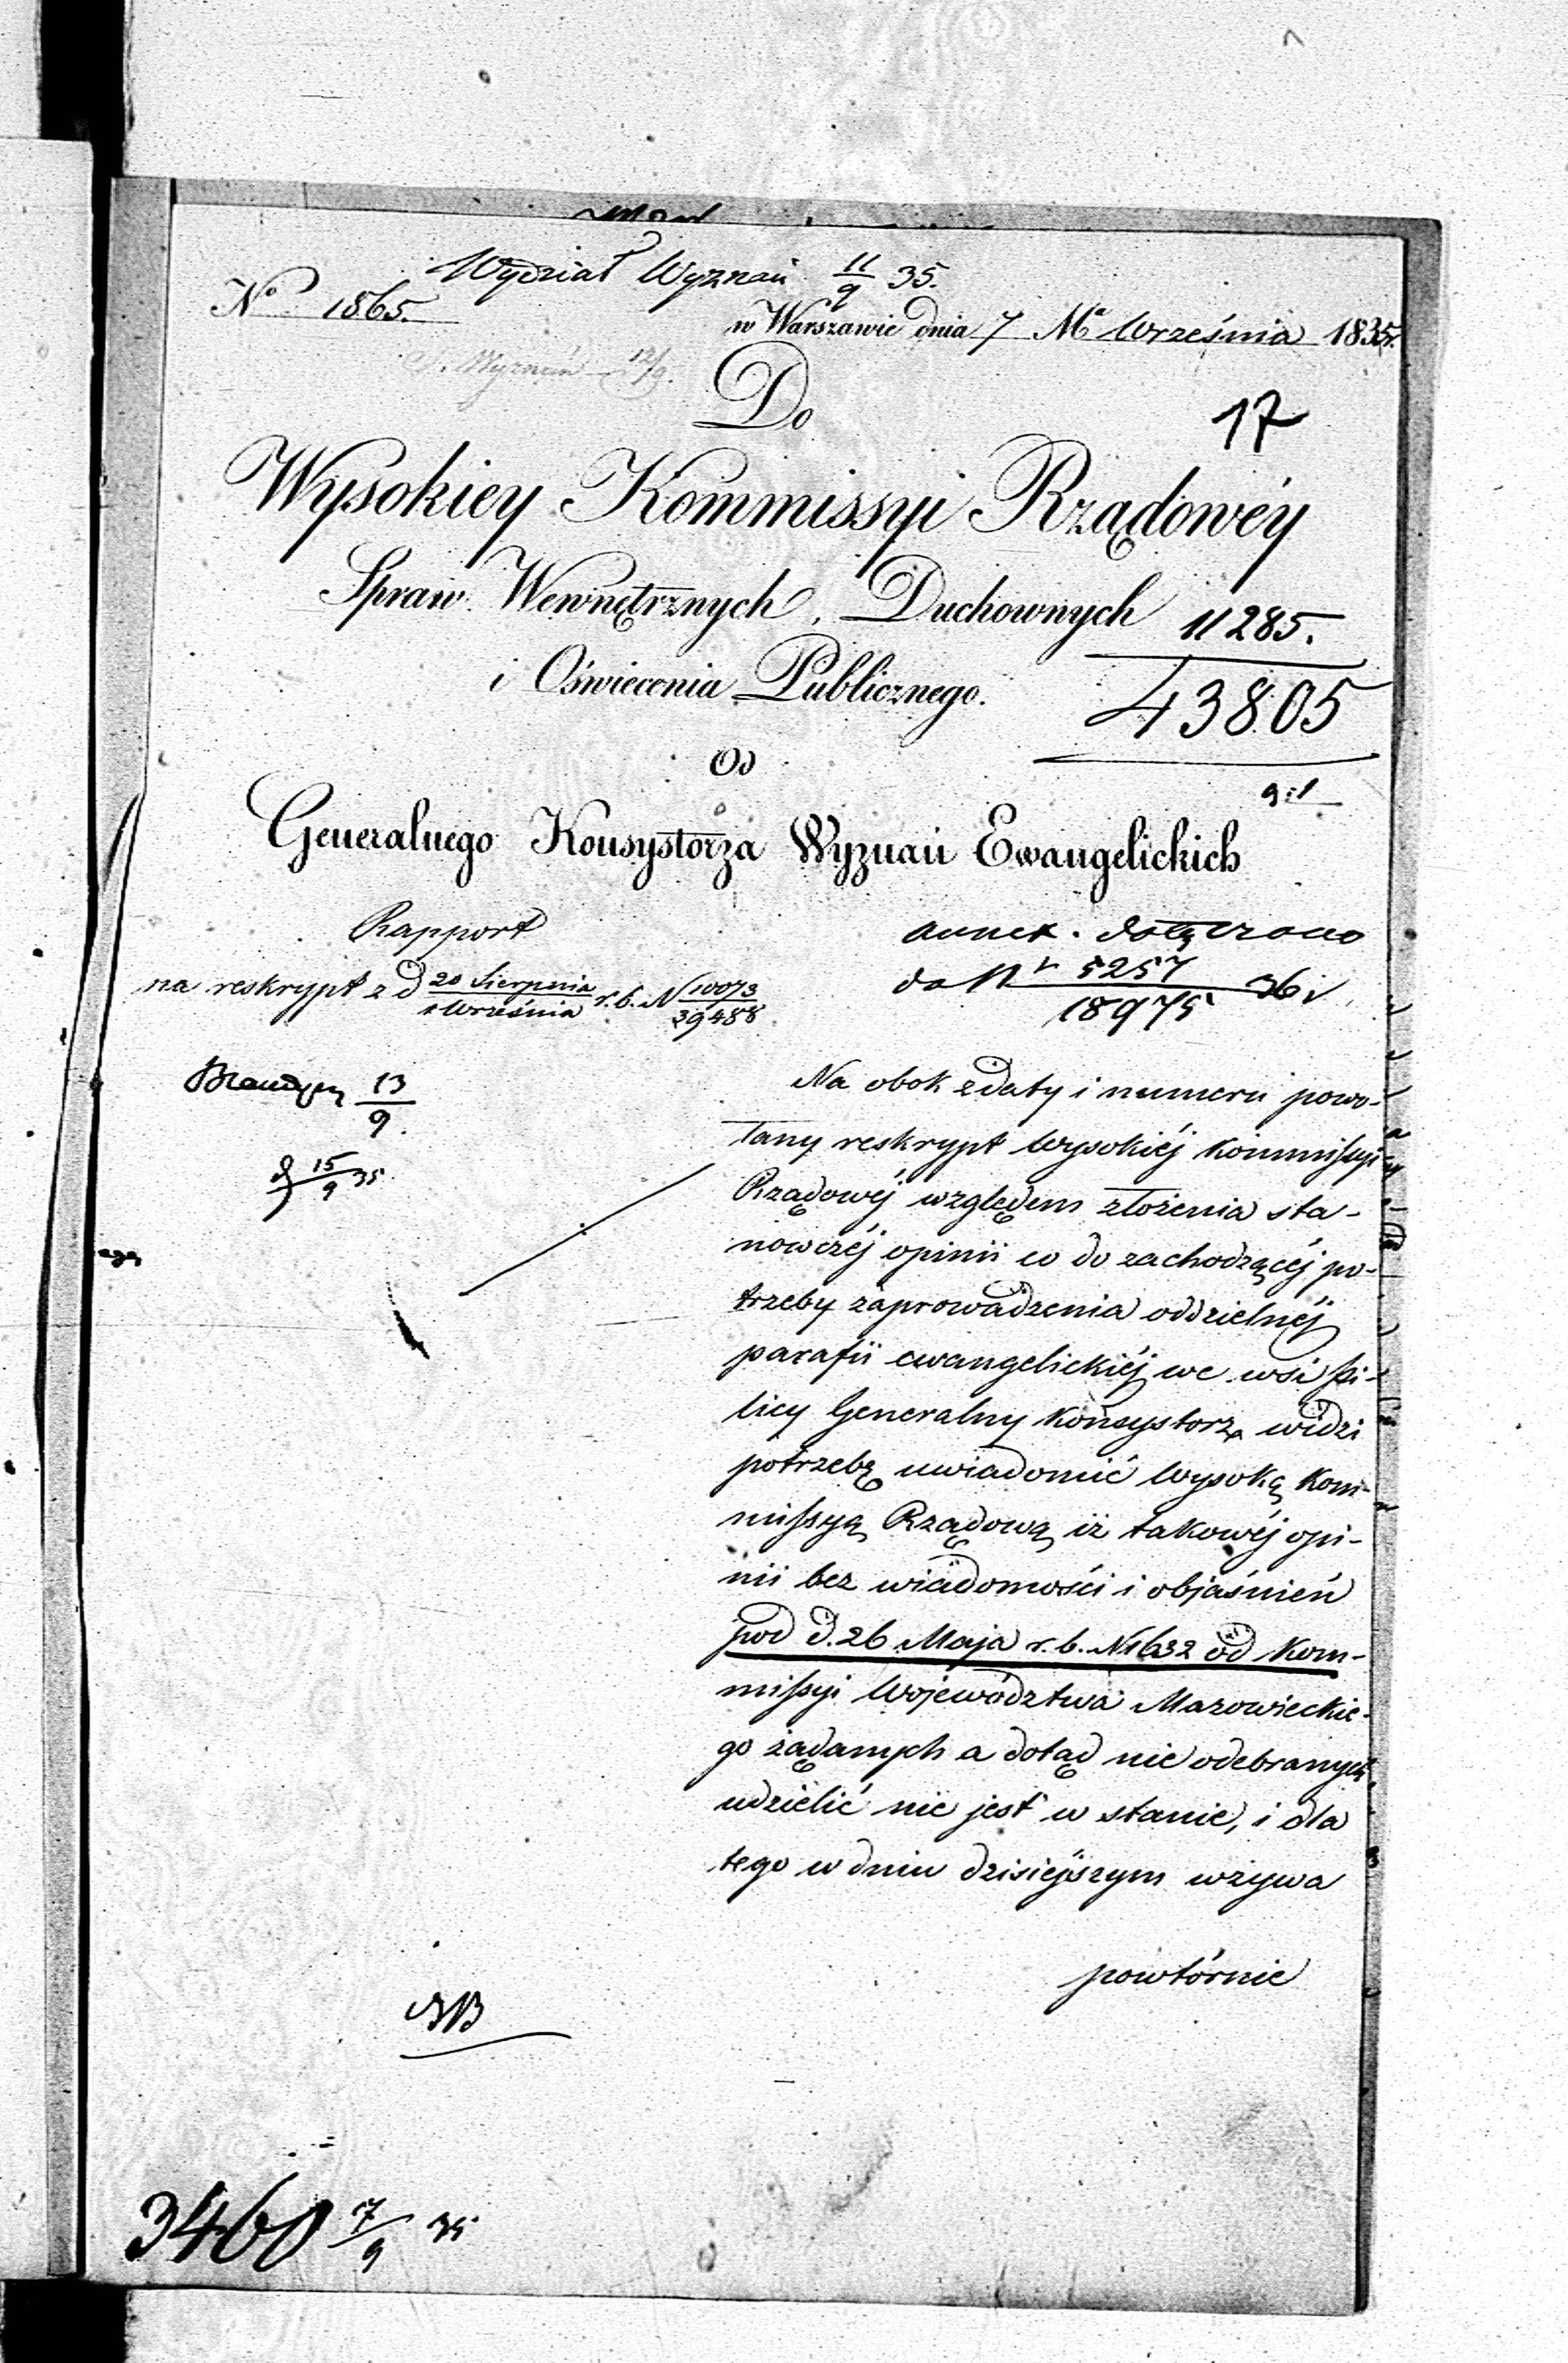 Wydział Wyznań 11/9 35.
No 1865.
w Warszawie dnia 7 Ma Września 1835r.
S. Wyznań 12/9.
Do
17
Wysokiey Kommissyi Rządowéy
Spraw Wewnętrznych, Duchownych
11285.
i Oświecenia Publicznego.
43805
Od
Generalnego Konsystorza Wyznań Ewangelickich
Rapport
na reskrypt z d 20 Sierpnia / 1 Września r. b. N 10073 / 39488
annex. dołączono
do Nr 5257 / 18975 36
13/9.
15/9 35.
Na obok z daty i numeru powo-
łany reskrypt Wysokiéj Kommissyi
Rządowéj względem złożenia sta-
nowczéj opinii co do zachodzącéj po-
trzeby zaprowadzenia oddzielnéj
parafii ewangelickiéj we wsi Pi-
licy Generalny Konsystorz widzi
potrzebę uwiadomić Wysoką Kom-
missyą Rządową iż takowéj opi-
nii bez wiadomości i objaśnień
pod d. 26 Maja r. b. N 1632 od Kom-
missyi Województwa Mazowieckie-
go żądanych a dotąd nie odebranych
udzielić nie jest w stanie, i dla
tego w dniu dzisiejszym wzywa
powtórnie
3460 7/9 35